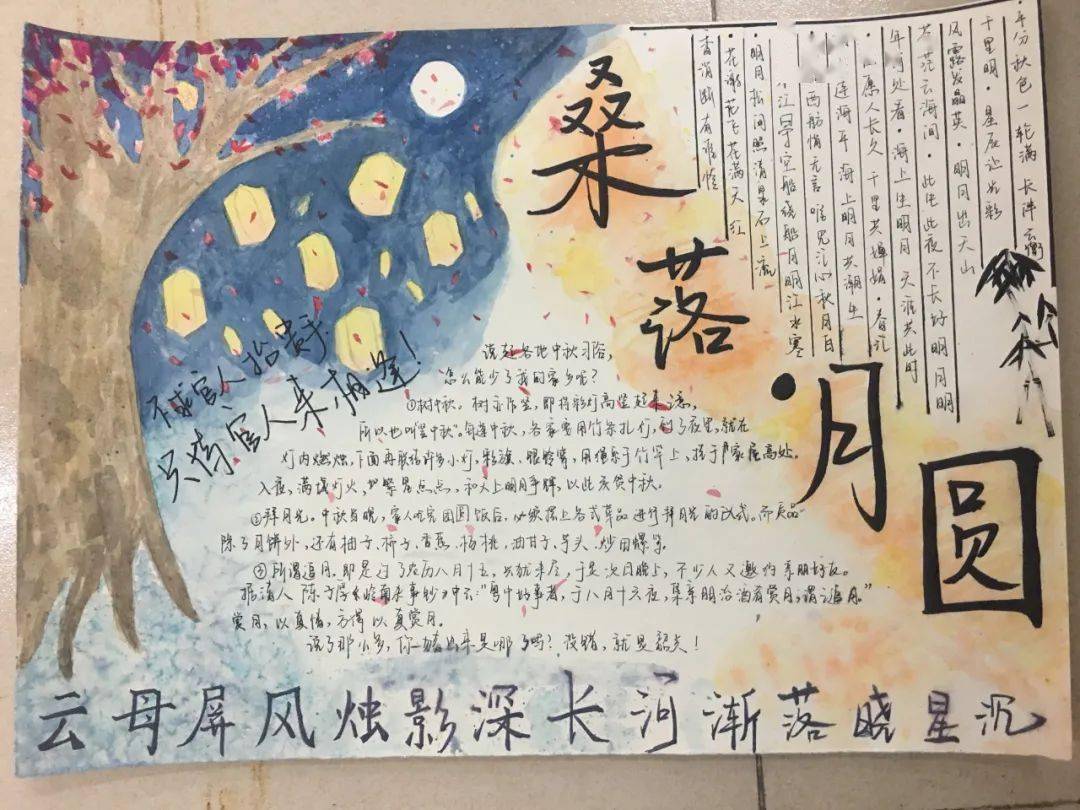 桑落·月圆
平分秋色一轮满 长伴云衢
千里明·星辰让光彩
风露发晶英·明月出天山
苍茫云海间·此生此夜不长好 明月明
年何处看·海上生明月 天涯共此时
愿人长久 千里共婵娟·春江
连海平 海上明月共潮生
西舫悄无言 唯见江心秋月白
江口空船绕船月明江水寒
·明月松间照 清泉石上流
·花谢花飞花满天 红
香消断有谁怜
不求官人抬贵手
只待官人来相逢!
说起各地中秋习俗,
怎么能少了我的家乡呢?
①树中秋。树亦作竖,即将彩灯高竖起来之意,
所以也叫"竖中秋"。每逢中秋,各家客用竹条扎灯,到了夜里,就在
灯内燃烛,下面再联结许多小灯,彩旗,用绳系于竹竿上,插于家屋高处。
入夜,满城灯火,如繁星点点,和天上明月争辉,以此庆贺中秋。
②拜月光。中秋当晚,家人吃完团圆饭后,必须摆上各式草品进行拜月光的仪式。而贡品
除了月饼外,还有柚子、柿子、香蕉、杨桃、油甘子、芋头、炒田螺等。
③所谓追月,即是过了农历八月十五,兴犹未尽,于是次日晚上,不少人又邀约亲朋好友。
据清人陈子厚《岭南杂事钞》中云:"粤中好事者,于八月十六夜,集亲朋治酒肴赏月,谓之追月。"
赏月,以真情,方得以真赏月。
说了那么多,你猜出来是哪了吗?没错,就是韶关!
云母屏风烛影深长河渐落晓星沉